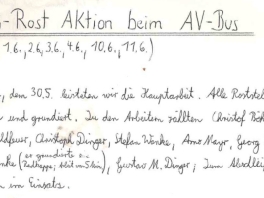 -Rost Aktion beim AV-Bus
1.6., 2.6, 3.6., 4.6., 10.6., 11.6.)
, dem 30.5. leisteten wir die Hauptarbeit. Alle Roststel
und grundiert. Zu den Arbeitern zählten Christof
ldfeuer, Christoph Dinger, Stefan Wonke, Arno Mayr, Georg
nke (er grundierte e
), Gustav M. Dinger; zum
n im Einsatz.